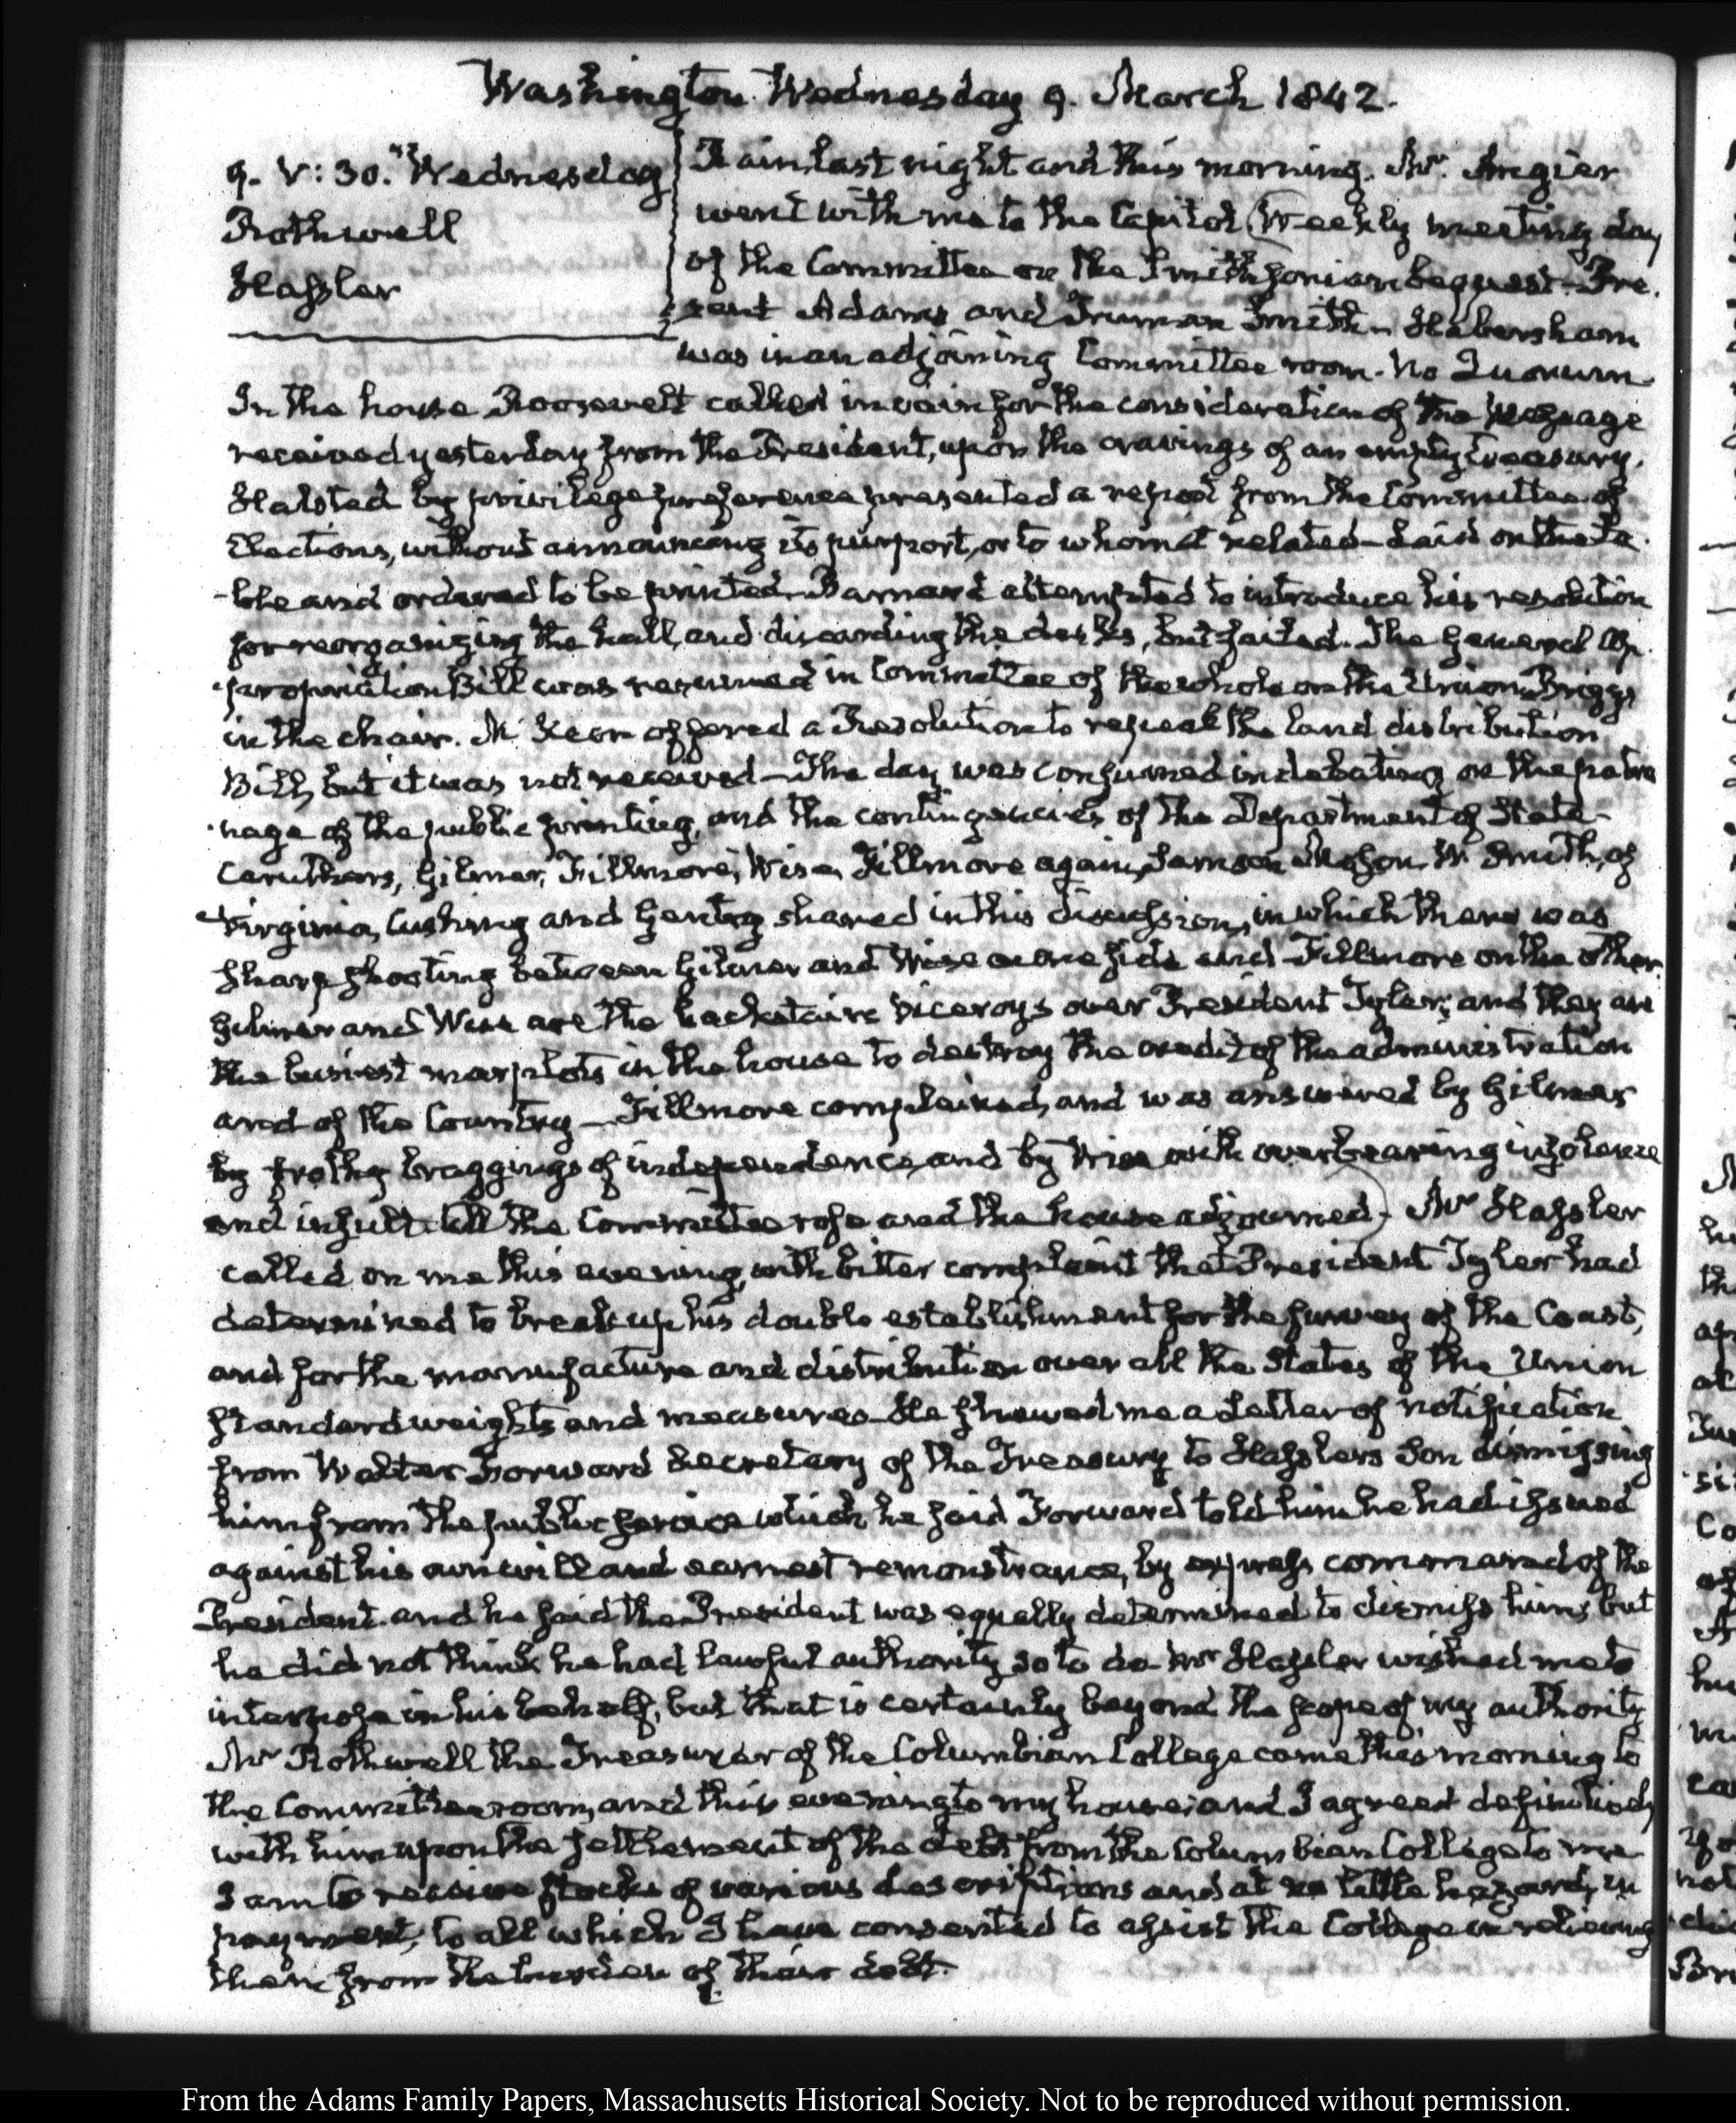 Washington Wednesday 9. March 1842.
9. V:30. Wednesday
Rothwell
Hassler
Rain last night and this morning. Mr. Angier
went with me to the Capitol (Weekly meeting day
of the Committee on the Smithsonian bequest—Pre-
sent Adams and Truman Smith—Habersham
was in an adjoining Committee room—No Quorum—
In the house Roosevelt called in vain for the consideration of the Message
received yesterday from the President, upon the cravings of an empty treasury.
Halsted by privilege preference presented a report from the Committee of
Elections, without announcing its purport, or to whom it related—laid on the ta-
-ble and ordered to be printed—Barnard attempted to introduce his resolution
for reorganizing the hall, and discarding the desks, but failed. The General Ap-
-propriation Bill was resumed in Committee of the whole on the Union Briggs
in the chair. Mc Keon offered a Resolution to repeal the land distribution
Bill, but it was not received—The day was consumed in debating on the patro
-nage of the public printing, and the contingencies of the Department of State—
Caruthers, Gilmer, Fillmore, Wise, Fillmore again, Samson Mason, W. Smith, of
Virginia, Cushing and Gentry shared in this discussion, in which there was
sharp shooting between Gilmer and Wise on one side and Fillmore on the other.
Gilmer and Wise are the backstairs viceroys over President Tyler; and they are
the busiest marplots in the house to destroy the credit of the administration
and of the Country—Fillmore complained, and was answered by Gilmer
by frothy braggings of independence, and by Wise with overbearing insolence
and insult. till the Committee rose and the house adjourned)—Mr Hassler
called on me this evening, with bitter complaint that President Tyler had
determined to break up his double establishment for the survey of the Coast,
and for the manufacture and distribution over all the States of the Union
standard weights and measures—He shewed me a Letter of notification
from Walter Forward Secretary of the Treasury to Hasslers Son dismissing
him from the public service which he said Forward told him he had issued
against his own will and earnest remonstrance, by express command of the
President. and he said the President was equally determined to dismiss him; but
he did not think he had lawful authority so to do—Mr Hassler wished me to
interpose in his behalf, but that is certainly beyond the scope of my authority
Mr Rothwell the Treasurer of the Columbian College came this morning to
the Committee room, and this evening to my house; and I agreed definitively
with him upon the settlement of the debt from the Columbian College to me
I am to receive stocks of various descriptions and at no little hazard, in
payment; to all which I have consented to assist the College in relieving
them from the burden of their debt.
From the Adams Family Papers, Massachusetts Historical Society. Not to be reproduced without permission.